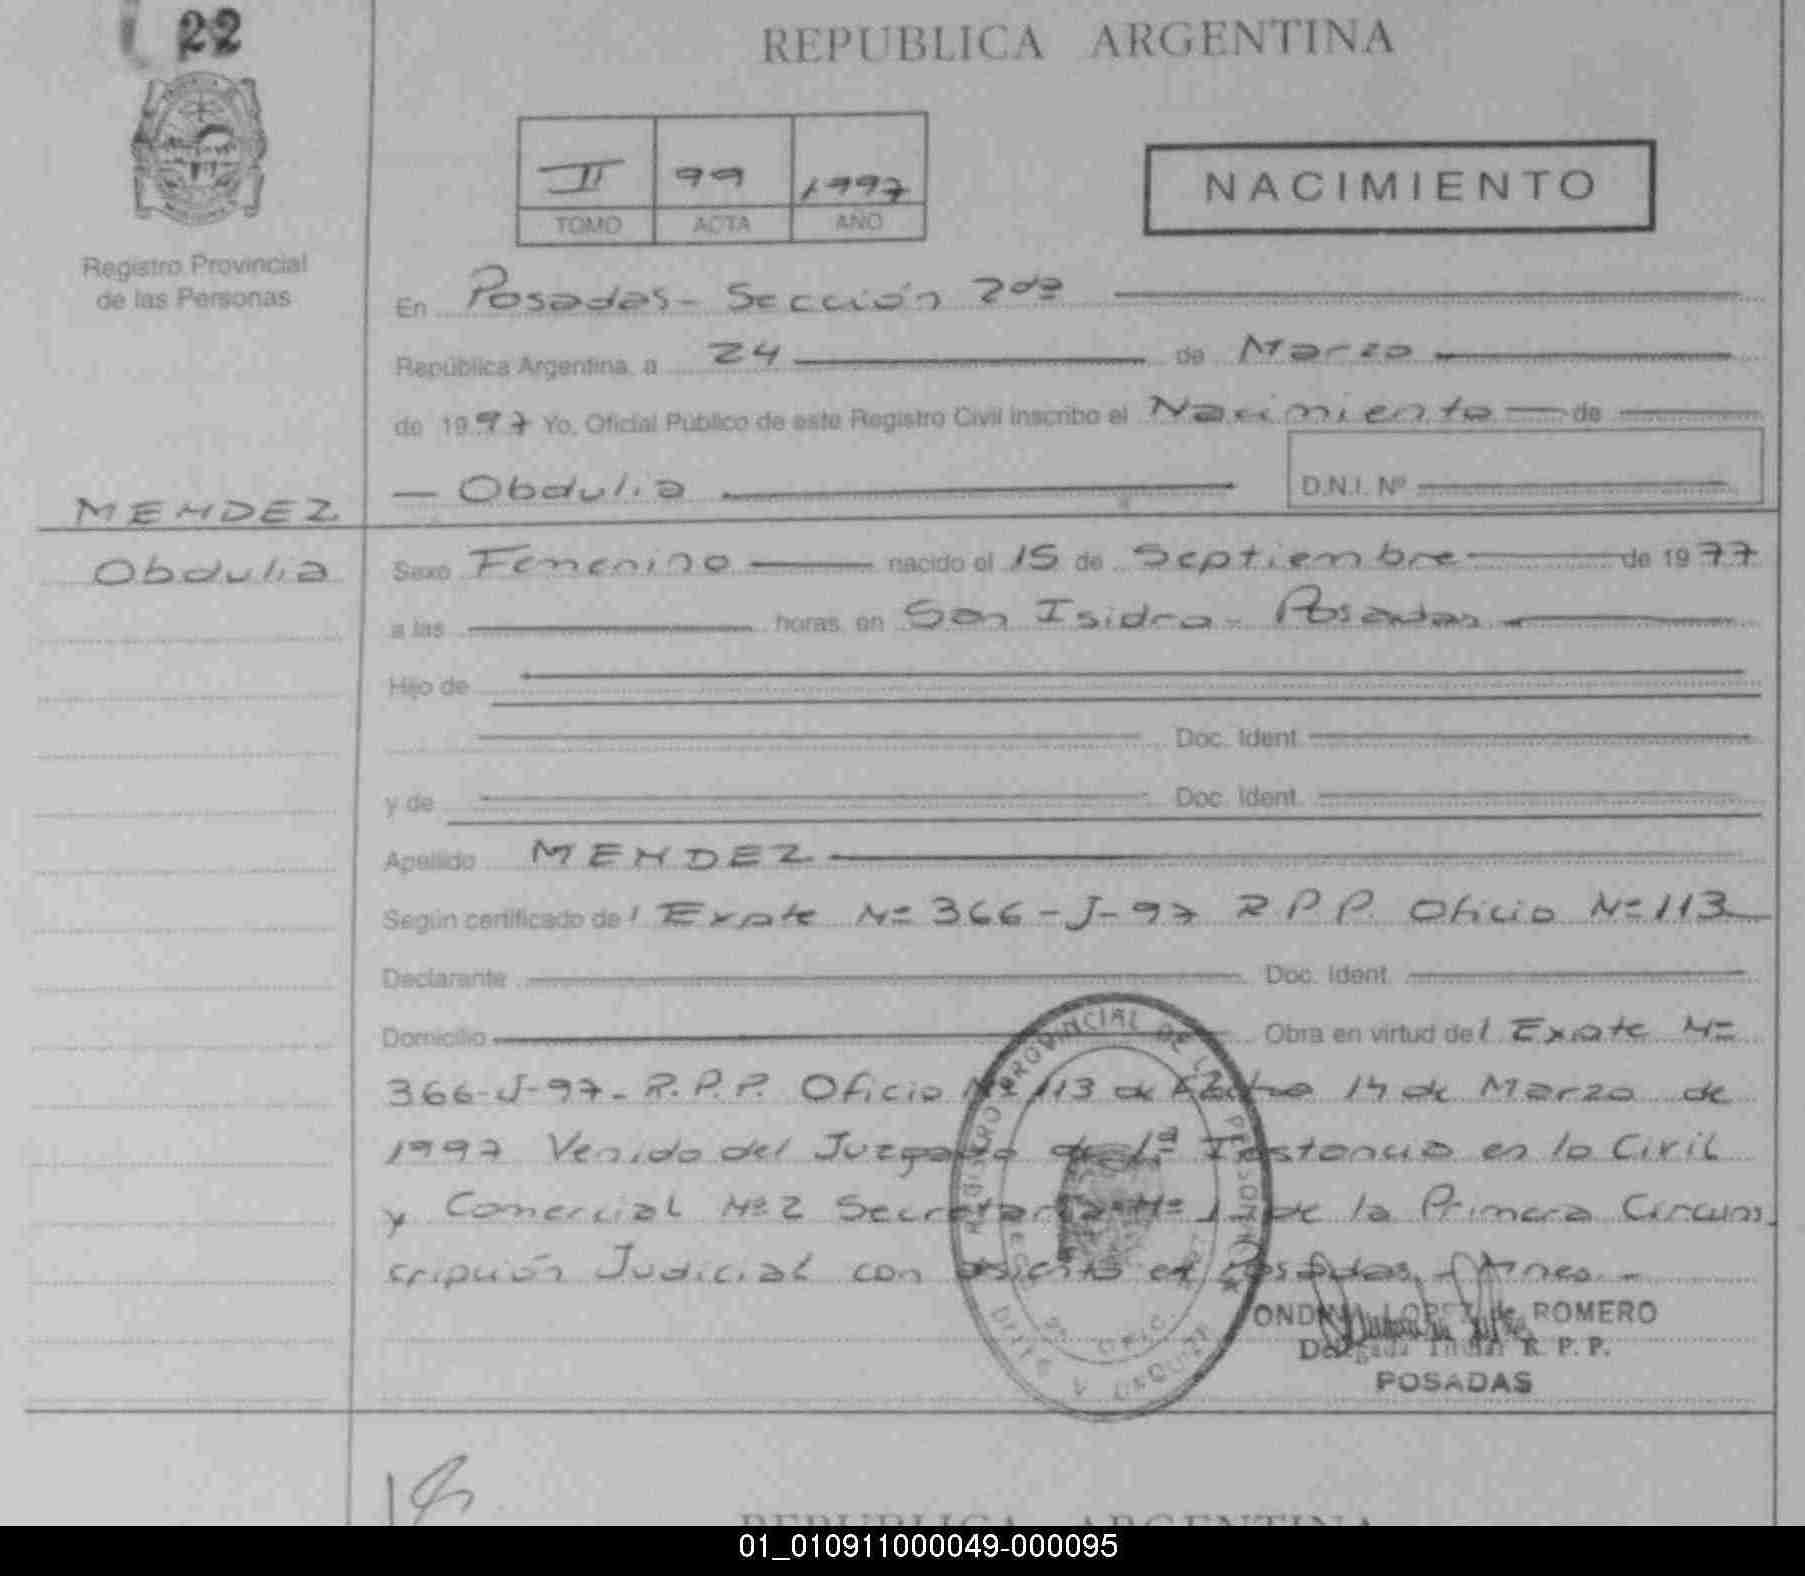 22
REPUBLICA ARGENTINA
II 99 1997
TOMO ACTA AÑO
NACIMIENTO
Registro Provincial
de las Personas
En Posadas - Sección 2da
República Argentina, a 24 de Marzo
de 1997 Yo, Oficial Público de este Registro Civil inscribo el Nacimiento de
Obdulia D.N.I. Nº
MENDEZ
Obdulia
Sexo Femenino nacido el 15 de Septiembre de 1977
a las horas, en San Isidro - Posadas
Hijo de
Doc. Ident.
y de Doc. Ident.
Apellido MENDEZ
Según certificado de l Expte Nº 366-J-97 R.P.P. Oficio Nº 113
Declarante Doc. Ident.
Domicilio Obra en virtud de l Expte Nº
366-J-97- R.P.P. Oficio Nº 113 de Fecha 14 de Marzo de
1997 Venido del Juzgado de 1ª Instancia en lo Civil
y Comercial Nº 2 Secretaria Nº 1 de la Primera Circuns
cripción Judicial con asiento en Posadas, Mnes.-
REGISTRO PROVINCIAL DE LAS PERSONAS
ONDINA LOPEZ de ROMERO
Delegada Titular R. P. P.
POSADAS
REPUBLICA ARGENTINA
01_010911000049-000095